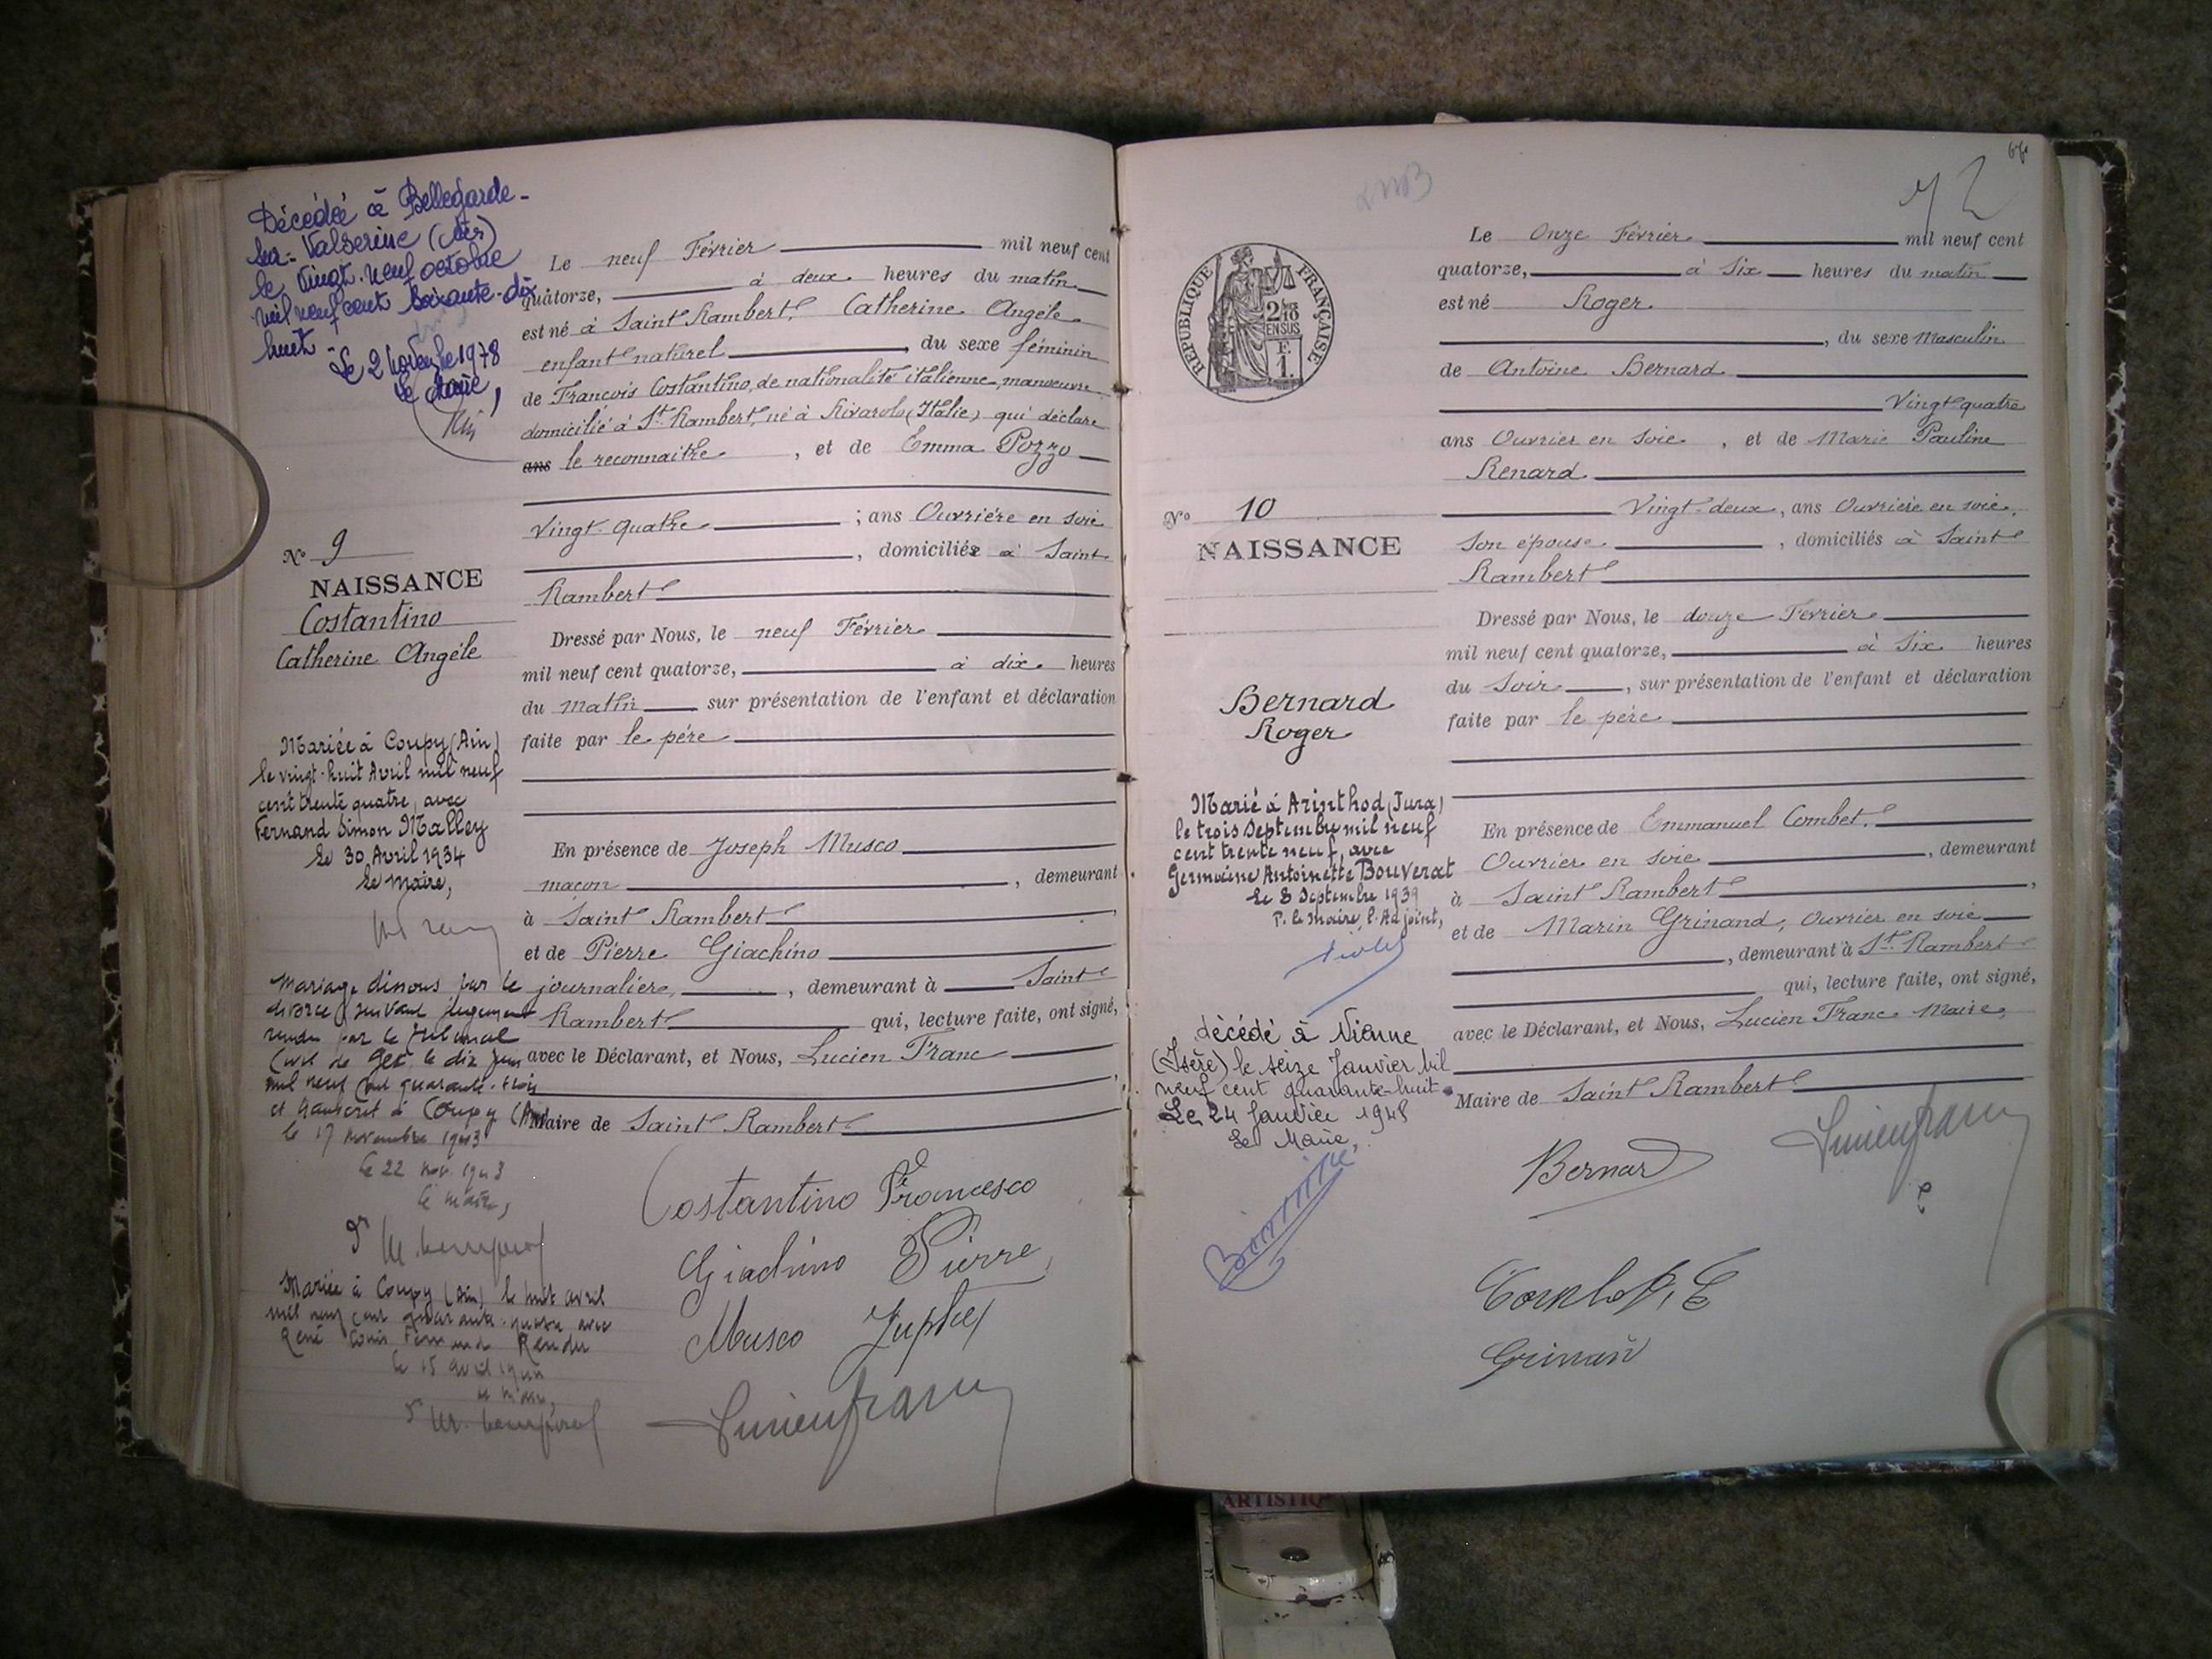 Décédée à Bellegarde-
sur-Valserine (Ain)
le vingt-neuf octobre
mil neuf cent soixante-dix
huit
Le 2 Novembre 1978
Le Maire,
Le neuf Février mil neuf cent
quatorze, à deux heures du matin
est né à Saint Rambert Catherine Angèle
enfant naturel, du sexe féminin
de François Costantino, de nationalité italienne manoeuvre
domicilié à St. Rambert, né à Rivarolo (Italie) qui déclare
ans le reconnaitre, et de Emma Pozzo
Vingt-quatre ; ans Ouvrière en soie
, domiciliée à Saint
Rambert
No 9
NAISSANCE
Costantino
Catherine Angéle
Dressé par Nous, le neuf Février
mil neuf cent quatorze, à dix heures
du matin sur présentation de l'enfant et déclaration
faite par le père
Mariée à Coupy (Ain)
le vingt-huit Avril mil neuf
cent trente quatre, avec
Fernand Simon Malley
Le 30 Avril 1934
Le Maire,
En présence de Joseph Musco
maçon, demeurant
à Saint Rambert,
et de Pierre Giachino
journalière, demeurant à Saint
Rambert qui, lecture faite, ont signé,
avec le Déclarant, et Nous, Lucien Franc
Maire de Saint Rambert
Mariage dissous par le
divorce suivant jugement
rendu par le tribunal
Civil de Gex le dix juin
mil neuf cent quarante-trois
et transcrit à Coupy (Ain)
le 17 novembre 1943
le 22 nov. 1943
le maire,
Mariée à Coupy (Ain) le huit avril
mil neuf cent quarante-quatre avec
René Louis Fernand Rendu
le 15 avril 1944
le maire,
Costantino Francesco
Giachino Pierre
Musco Juphes
Lucien Franc
72
REPUBLIQUE FRANÇAISE
2/10
EN SUS
F.
1.
Le Onze Février mil neuf cent
quatorze, à Six heures du matin
est né Roger
, du sexe Masculin
de Antoine Bernard
Vingt-quatre
ans Ouvrier en soie, et de Marie Pauline
Renard
Vingt-deux, ans Ouvrière en soie,
Son épouse, domiciliés à Saint
Rambert
No 10
NAISSANCE
Bernard
Roger
Dressé par Nous, le douze Fevrier
mil neuf cent quatorze, à Six heures
du Soir, sur présentation de l'enfant et déclaration
faite par le père
Marié à Arinthod (Jura)
le trois Septembre mil neuf
cent trente neuf, avec
Germaine Antoinette Bouverat
Le 8 Septembre 1939
P. le Maire, l'Adjoint,
En présence de Emmanuel Combet.
Ouvrier en soie, demeurant
à Saint Rambert,
et de Marin Grinand, Ouvrier en soie
, demeurant à St. Rambert
qui, lecture faite, ont signé,
avec le Déclarant, et Nous, Lucien Franc Maire,
Maire de Saint Rambert
décédé à Vienne
(Isère) le seize Janvier mil
neuf cent quarante-huit
Le 24 Janvier 1948
Le Maire,
Bernard
Lucien Franc
Grinand
ARTISTIQ